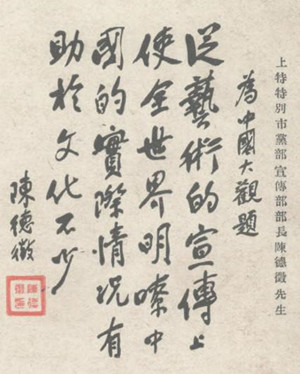 上特特別市黨部宣傳部部長陳德徵先生
為中國大觀題
從藝術的宣傳上
使全世界明嘹中
國的實際情况有
助於文化不少
陳德徵